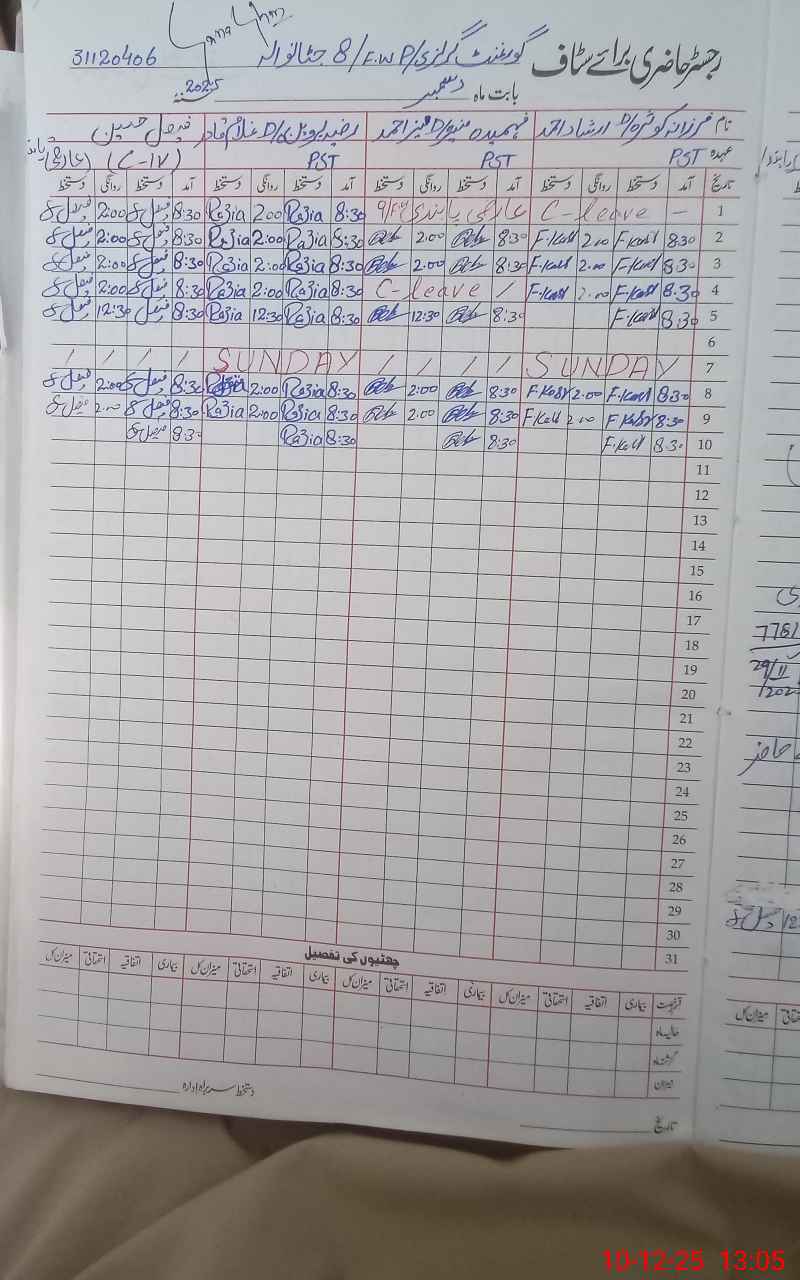 رجسٹر حاضری برائے سٹاف گورنمنٹ گرلز F.W.P/8 جڑانوالہ 31120406
بابت ماہ دسمبر 2025
نام فرزانہ کوثر D/O ارشاد احمد فہمیدہ منیر D/O منیر احمد رضیہ پروین D/O غلام قادر فیصل حسین
عہدہ PST PST PST (C-17)
تاریخ آمد دستخط روانگی دستخط آمد دستخط روانگی دستخط آمد دستخط روانگی دستخط آمد دستخط روانگی دستخط
1 — C-leave عارضی پابندی 8:30 Razia 2:00 Razia 8:30 فیصل 2:00 فیصل
2 8:30 F.Kausr 2:00 F.Kausr 8:30 2:00 8:30 Razia 2:00 Razia 8:30 فیصل 2:00 فیصل
3 8:30 F.Kausr 2:00 F.Kausr 8:30 2:00 8:30 Razia 2:00 Razia 8:30 فیصل 2:00 فیصل
4 8:30 F.Kausr 2:00 F.Kausr / C-leave 8:30 Razia 2:00 Razia 8:30 فیصل 2:00 فیصل
5 8:30 F.Kausr 8:30 12:30 8:30 Razia 12:30 Razia 8:30 فیصل 12:30 فیصل
6
7 SUNDAY / / / / SUNDAY / / / /
8 8:30 F.Kausr 2:00 F.Kausr 8:30 2:00 8:30 Razia 2:00 Razia 8:30 فیصل 2:00 فیصل
9 8:30 F.Kausr 2:00 F.Kausr 8:30 2:00 8:30 Razia 2:00 Razia 8:30 فیصل 2:00 فیصل
10 8:30 F.Kausr 8:30 8:30 Razia 8:30 فیصل
11
12
13
14
15
16
17
18
19
20
21
22
23
24
25
26
27
28
29
30
31
چھٹیوں کی تفصیل
بیماری اتفاقیہ استحقاقی میزان کل بیماری اتفاقیہ استحقاقی میزان کل بیماری اتفاقیہ استحقاقی میزان کل بیماری اتفاقیہ استحقاقی میزان کل
حالیہ ماہ
گزشتہ ماہ
میزان
دستخط سربراہ ادارہ
تاریخ
7781
29/11
/202
حاضر
میزان کل
10-12-25 13:05